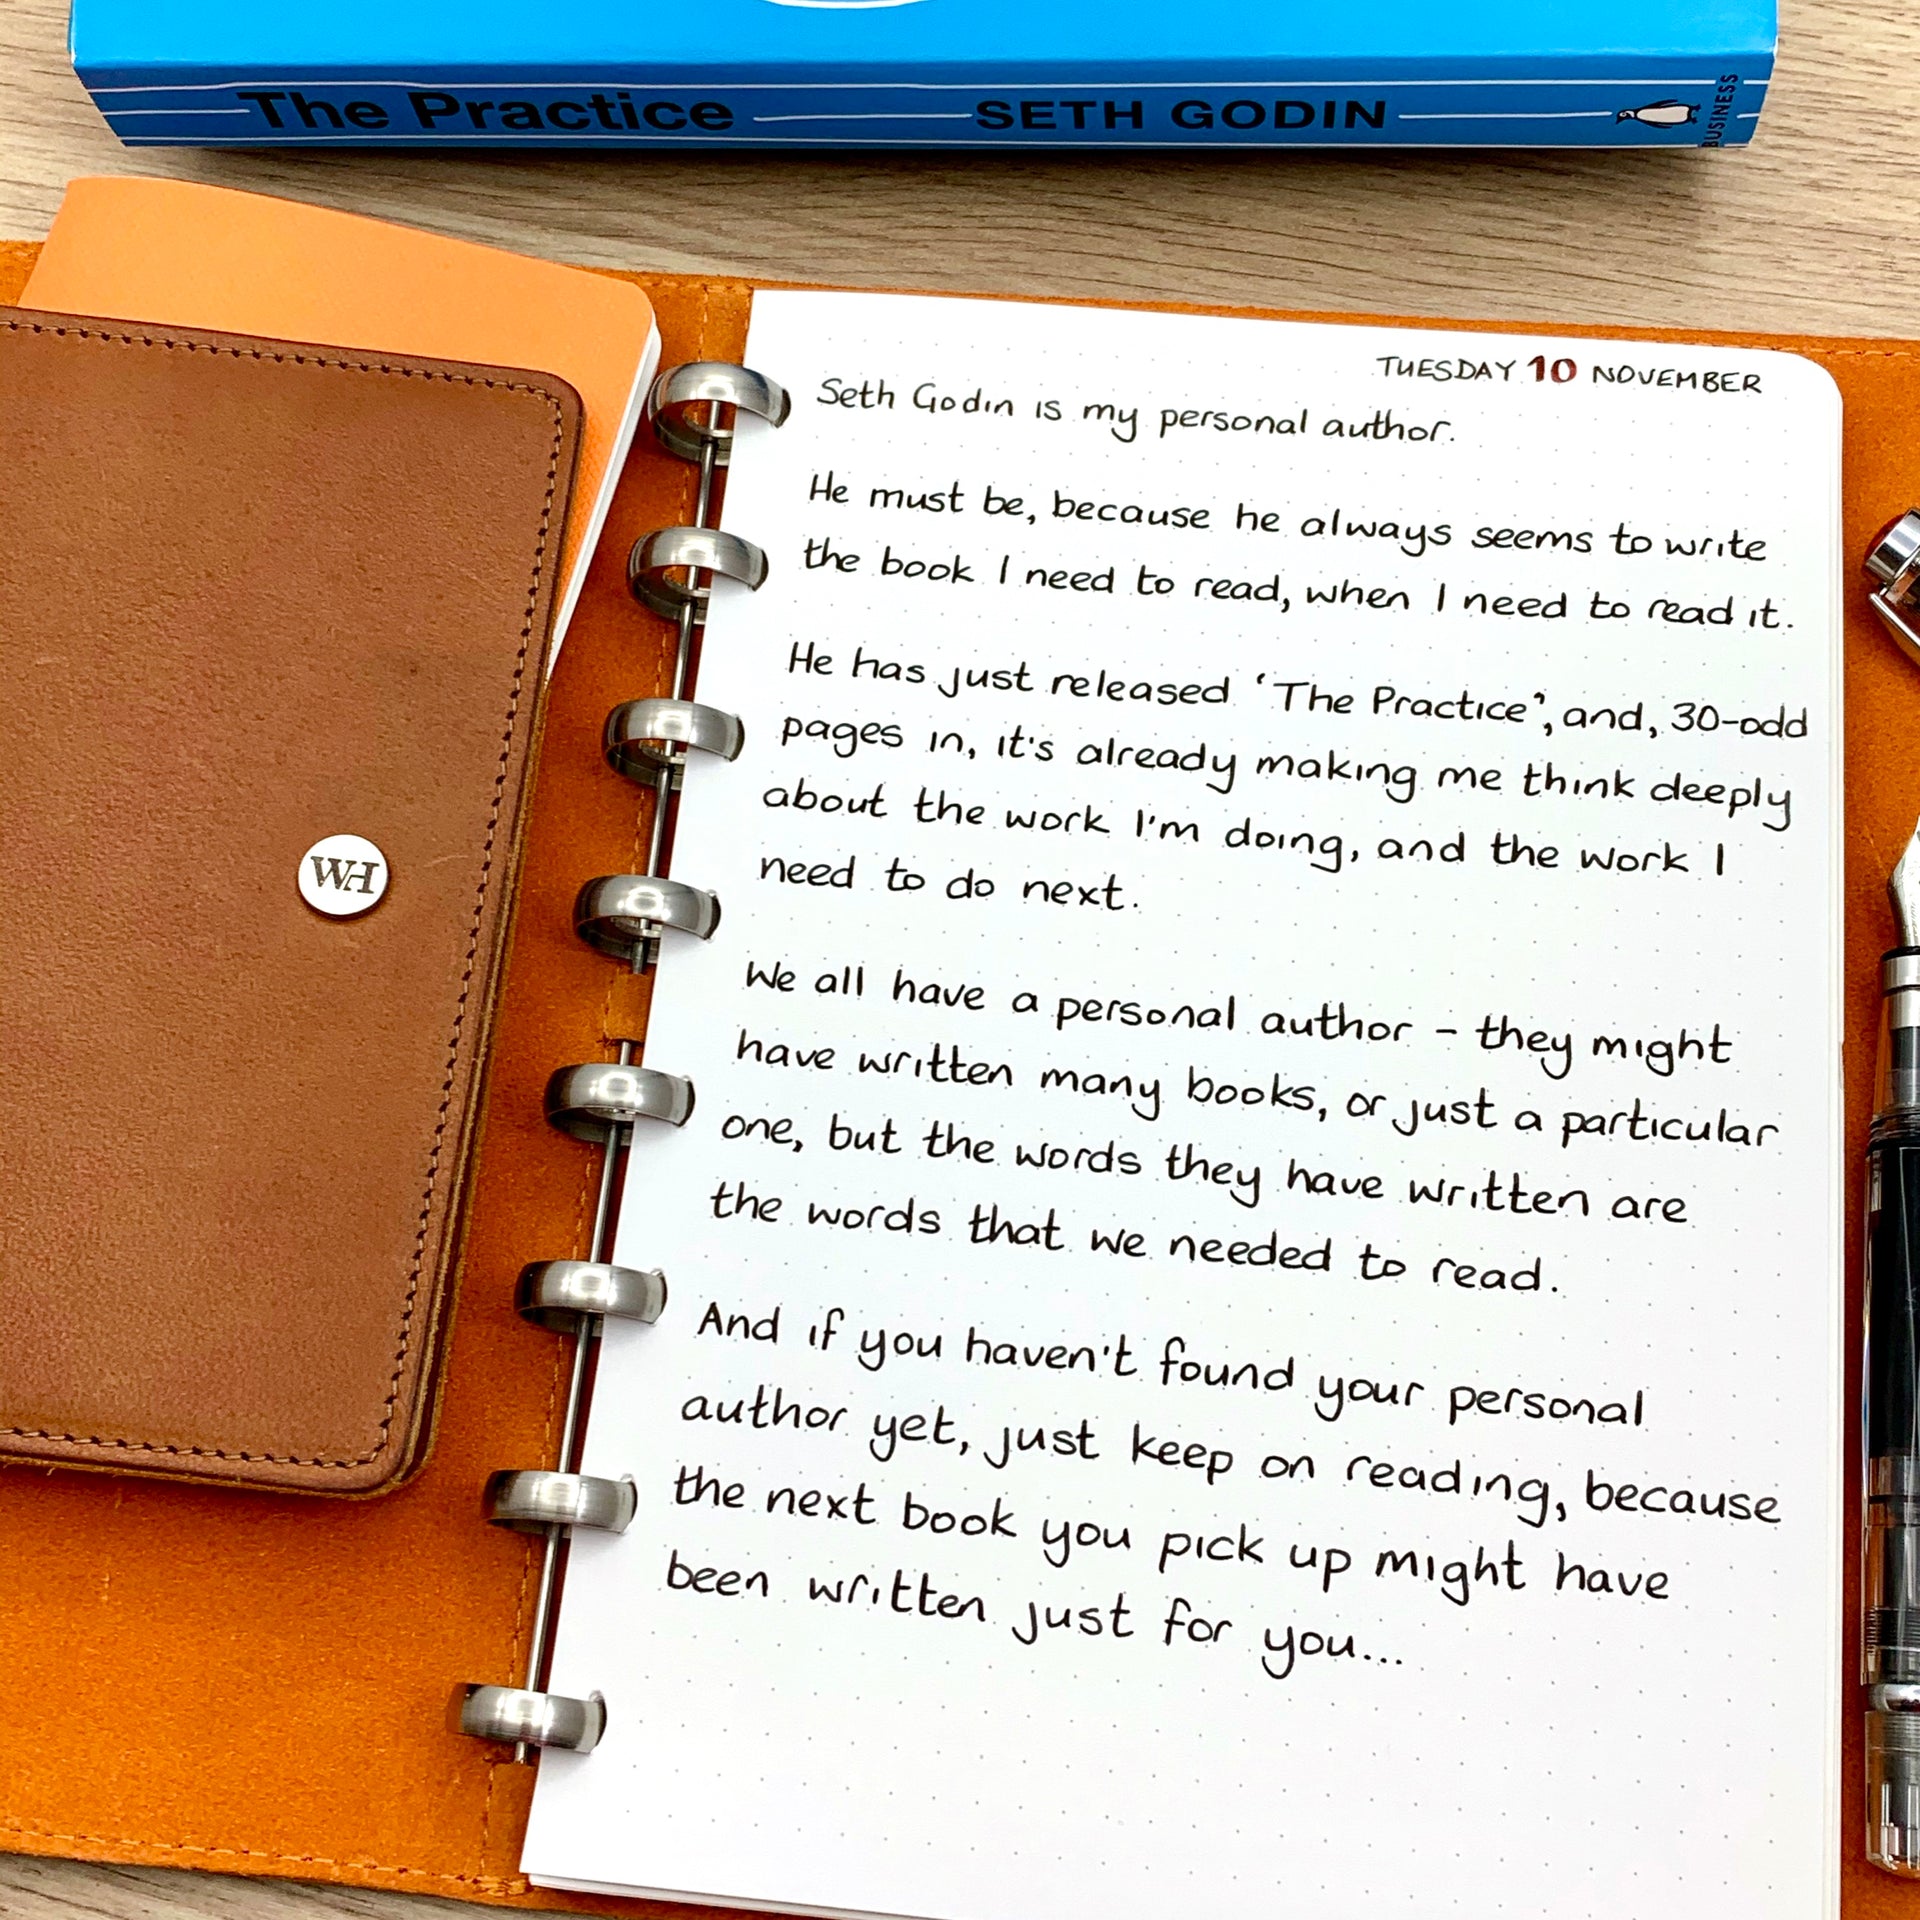 The Practice SETH GODIN
BUSINESS
WH
TUESDAY 10 NOVEMBER
Seth Godin is my personal author.
He must be, because he always seems to write
the book I need to read, when I need to read it.
He has just released 'The Practice', and, 30-odd
pages in, it's already making me think deeply
about the work I'm doing, and the work I
need to do next.
We all have a personal author - they might
have written many books, or just a particular
one, but the words they have written are
the words that we needed to read.
And if you haven't found your personal
author yet, just keep on reading, because
the next book you pick up might have
been written just for you...